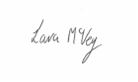 Lara McVey